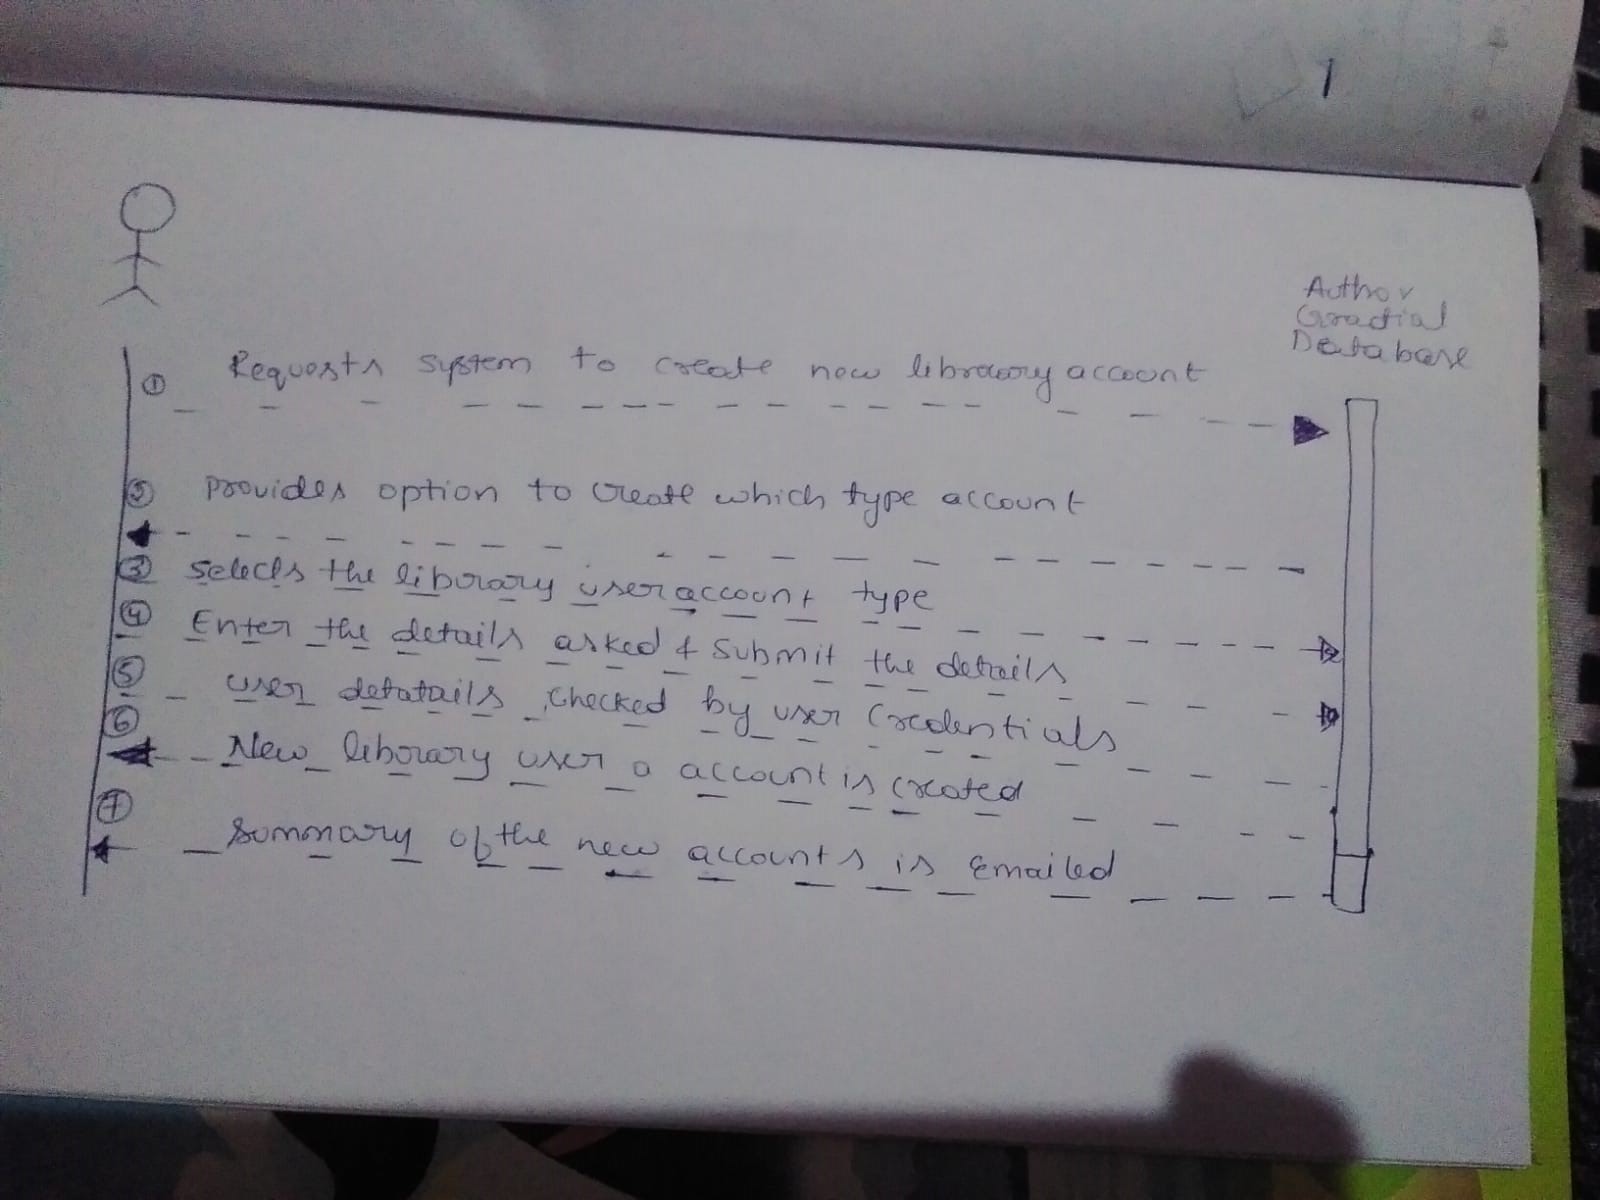 1
Author
Database
① Requests system to create new library account
② provides option to create which type account
③ selects the library user account type
④ Enter the details asked & submit the details
⑤ user detatails checked by user Credentials
⑥ New library user a account is created
⑦ Summary of the new accounts is Emailed